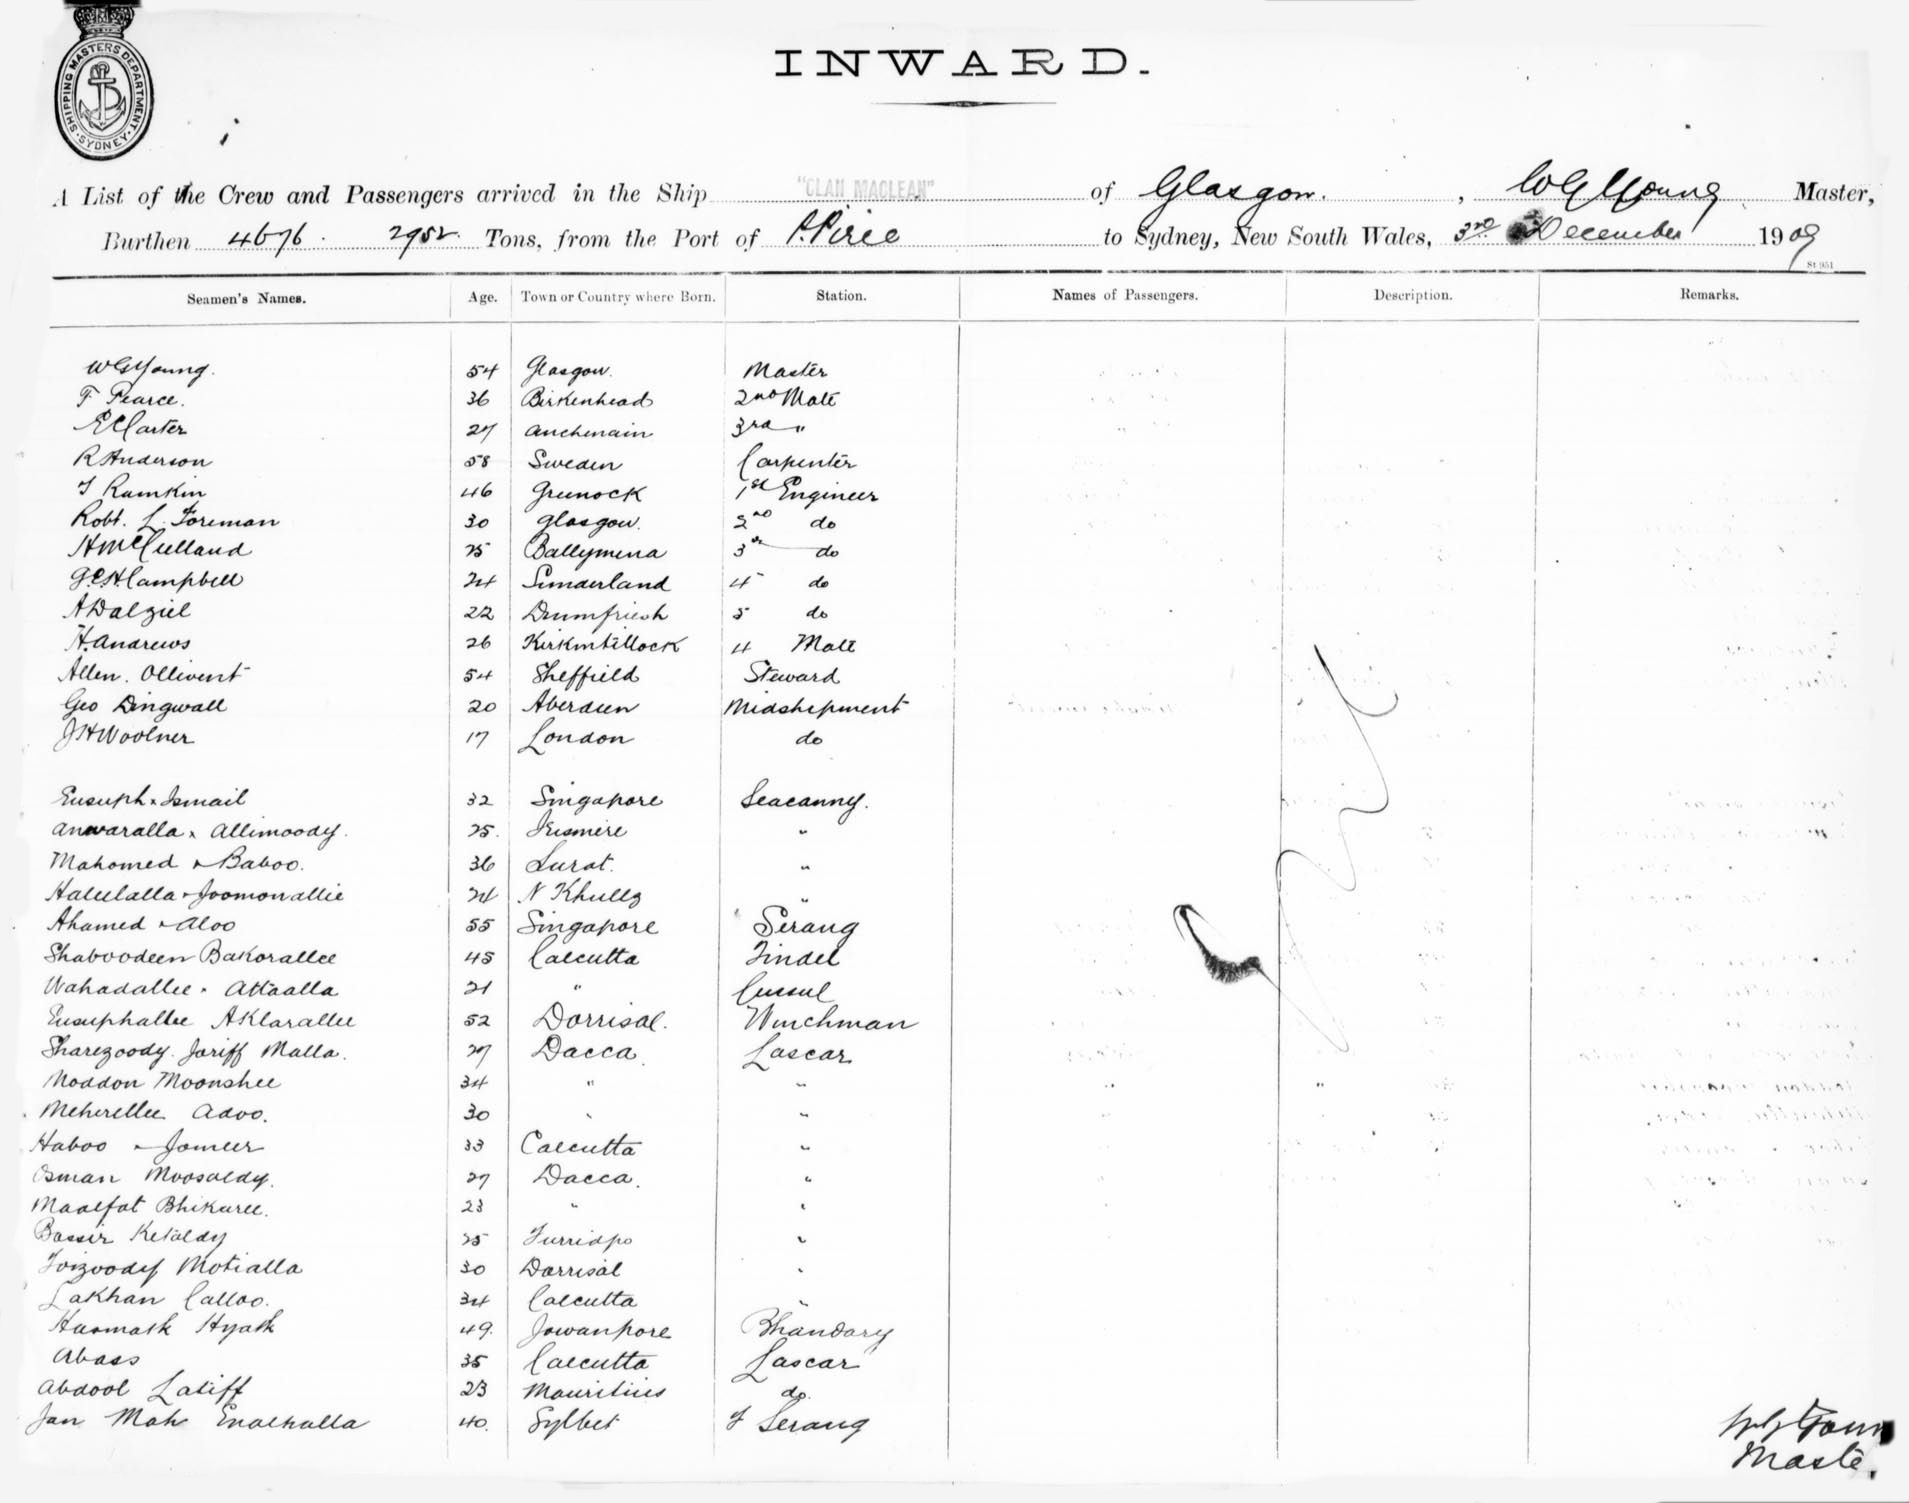 SHIPPING MASTERS DEPARTMENT
SYDNEY
INWARD.
A List of the Crew and Passengers arrived in the Ship "CLAN MACLEAN" of Glasgow. , WG Young Master,
Burthen 4676. 2952 Tons, from the Port of P. Pirie to Sydney, New South Wales, 3rd December 1909
St 951
Seamen's Names. Age. Town or Country where Born. Station. Names of Passengers. Description. Remarks.
WG Young. 54 Glasgow. Master
F Pearce. 36 Birkenhead 2nd Mate
E Carter 27 3rd "
R Anderson 58 Sweden Carpenter
J Ramkin 46 Greenock 1st Engineer
Robt. L. Foreman 30 Glasgow. 2nd do
H McClelland 25 Ballymena 3rd do
G.C.H. Campbell 24 Sunderland 4 do
A Dalziel 22 Drumfriesh 5 do
H. Andrews 26 Kirkintillock 4 Mate
Allen. Ollivent 54 Sheffield Steward
Geo Dingwall 20 Aberdeen Midshipment
JH Woolner 17 London do
Eusuph x Ismail 32 Singapore Seacunny.
Anwaralla x Allimoody. 25. "
Mahomed x Baboo. 36 Surat. "
Joomonallie 24 N Khully "
Ahamed x Aloo 55 Singapore Serang
Shaboodeen Bakorallee 45 Calcutta Tindel
Wahadallee . Attaalla 21 " Cussul
Eusuphallee Aklarallee 52 Dorrisal. Winchman
Sharezoody. Jariff Malla. 27 Dacca. Lascar
Noddon Moonshee 34 " "
Meherellee Adoo. 30 " "
Haboo x Jomeer 33 Calcutta "
Osman Moosaldy. 27 Dacca. "
Maalfat Bhikaree. 23 " "
Bassir Ketaldy 25 Furridpo "
Foizoody Motialla 30 Dorrisal "
Lakhan Calloo. 34 Calcutta "
Husmath Hyath 49. Jowanpore Bhandary
Abass 35 Calcutta Lascar
Abdool Latiff 23 Mauritius do.
Jan Mah 40. Sylhet F Serang
WG Youn
Maste.